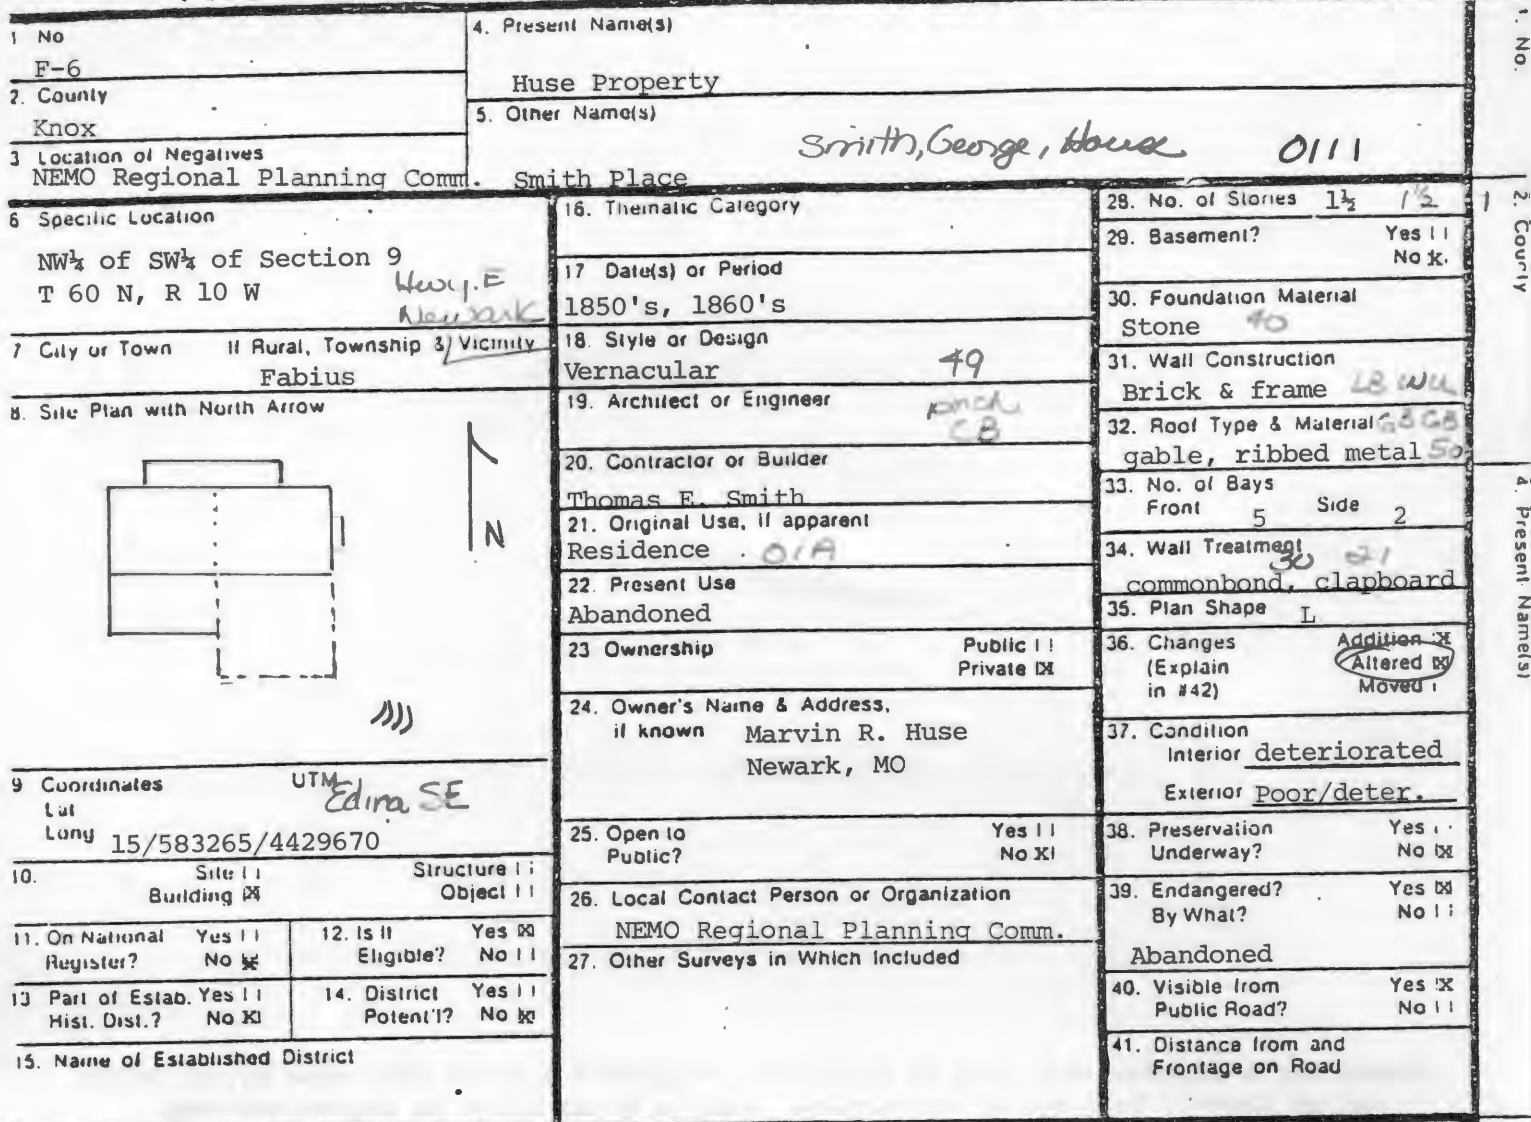 1 No
F-6
2. County
Knox
3 Location of Negatives
NEMO Regional Planning Comm.
4. Present Name(s)
Huse Property
5. Other Name(s)
Smith, George, House 0111
Smith Place
6 Specific Location
NW¼ of SW¼ of Section 9
T 60 N, R 10 W
Newark
7 City or Town If Rural, Township & Vicinity
Fabius
8. Site Plan with North Arrow
N
9 Coordinates UTM
Edina SE
Lat
Long 15/583265/4429670
10. Site Structure
Building X Object
11. On National Register? Yes No X
12. Is It Eligible? Yes X No
13 Part of Estab. Hist. Dist.? Yes No X
14. District Potent'l? Yes No X
15. Name of Established District
16. Thematic Category
17 Date(s) or Period
1850's, 1860's
18. Style or Design
Vernacular 49
19. Architect or Engineer
CB
20. Contractor or Builder
Thomas E. Smith
21. Original Use, if apparent
Residence 01A
22. Present Use
Abandoned
23 Ownership Public
Private X
24. Owner's Name & Address,
if known Marvin R. Huse
Newark, MO
25. Open to Yes
Public? No X
26. Local Contact Person or Organization
NEMO Regional Planning Comm.
27. Other Surveys in Which Included
28. No. of Stories 1½ 1½
29. Basement? Yes
No X
30. Foundation Material
Stone 40
31. Wall Construction
Brick & frame
32. Roof Type & Material GB GB
gable, ribbed metal 50
33. No. of Bays
Front 5 Side 2
34. Wall Treatment
30 21
commonbond, clapboard
35. Plan Shape L
36. Changes Addition X
(Explain Altered X
in #42) Moved
37. Condition
Interior deteriorated
Exterior Poor/deter.
38. Preservation Yes
Underway? No X
39. Endangered? Yes X
By What? No
Abandoned
40. Visible from Yes X
Public Road? No
41. Distance from and
Frontage on Road
1. No.
1
2. County
4. Present Name(s)